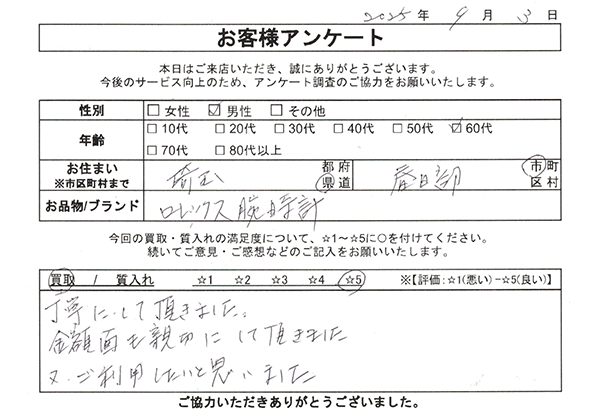 2025 年 9 月 3 日
お客様アンケート
本日はご来店いただき、誠にありがとうございます。
今後のサービス向上のため、アンケート調査のご協力をお願いいたします。
性別 □ 女性 ☑ 男性 □ その他
年齢 □ 10代 □ 20代 □ 30代 □ 40代 □ 50代 ☑ 60代
□ 70代 □ 80代以上
お住まい ※市区町村まで 埼玉 都 府 県 道 春日部 市 町 区 村
お品物/ブランド ロレックス 腕時計
今回の買取・質入れの満足度について、☆1～☆5に○を付けてください。
続いてご意見・ご感想などのご記入をお願いいたします。
買取 / 質入れ ☆1 ☆2 ☆3 ☆4 ☆5 ※【評価:☆1(悪い)−☆5(良い)】
丁寧にして頂きました。
金額面も親切にして頂きました
又、ご利用したいと思いました
ご協力いただきありがとうございました。